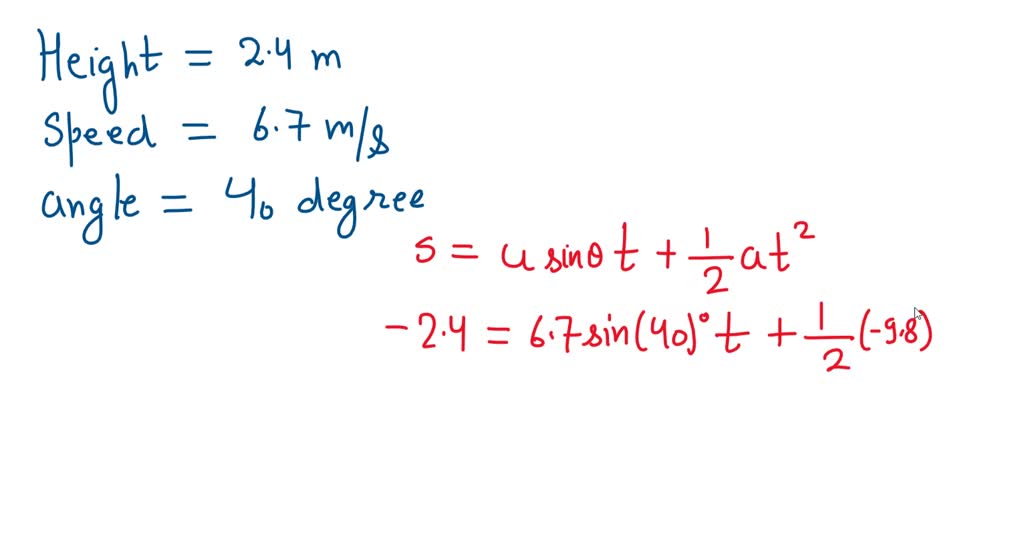 Height = 2.4 m
Speed = 6.7 m/s
angle = 40 degree
s = u sinθ t + 1/2 at²
-2.4 = 6.7 sin(40)° t + 1/2 (-9.8)